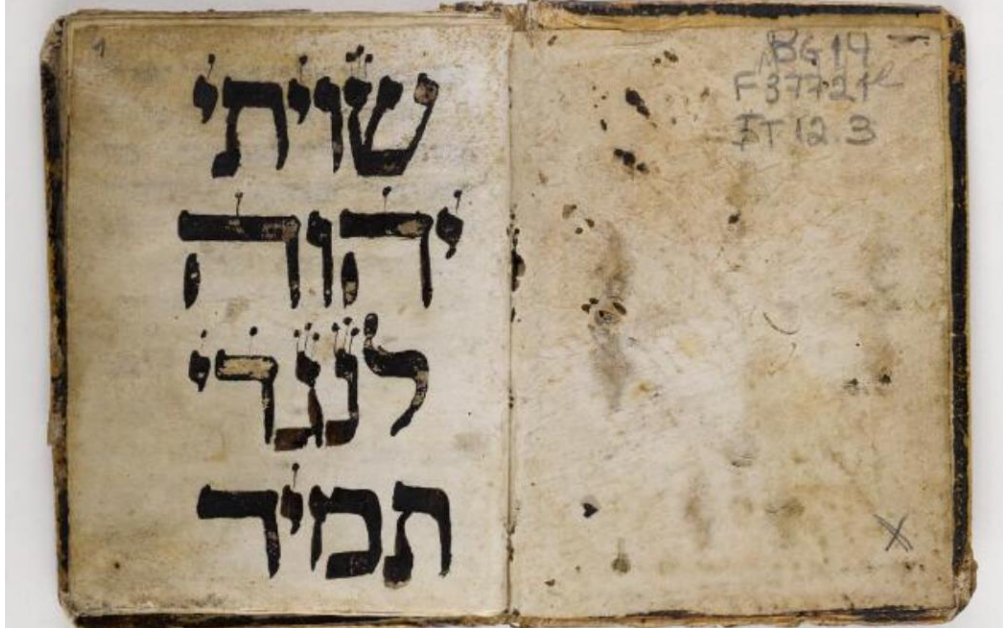 1
שויתי
יהוה
לנגדי
תמיד
BG 14
F 37721
IT 12 3
X